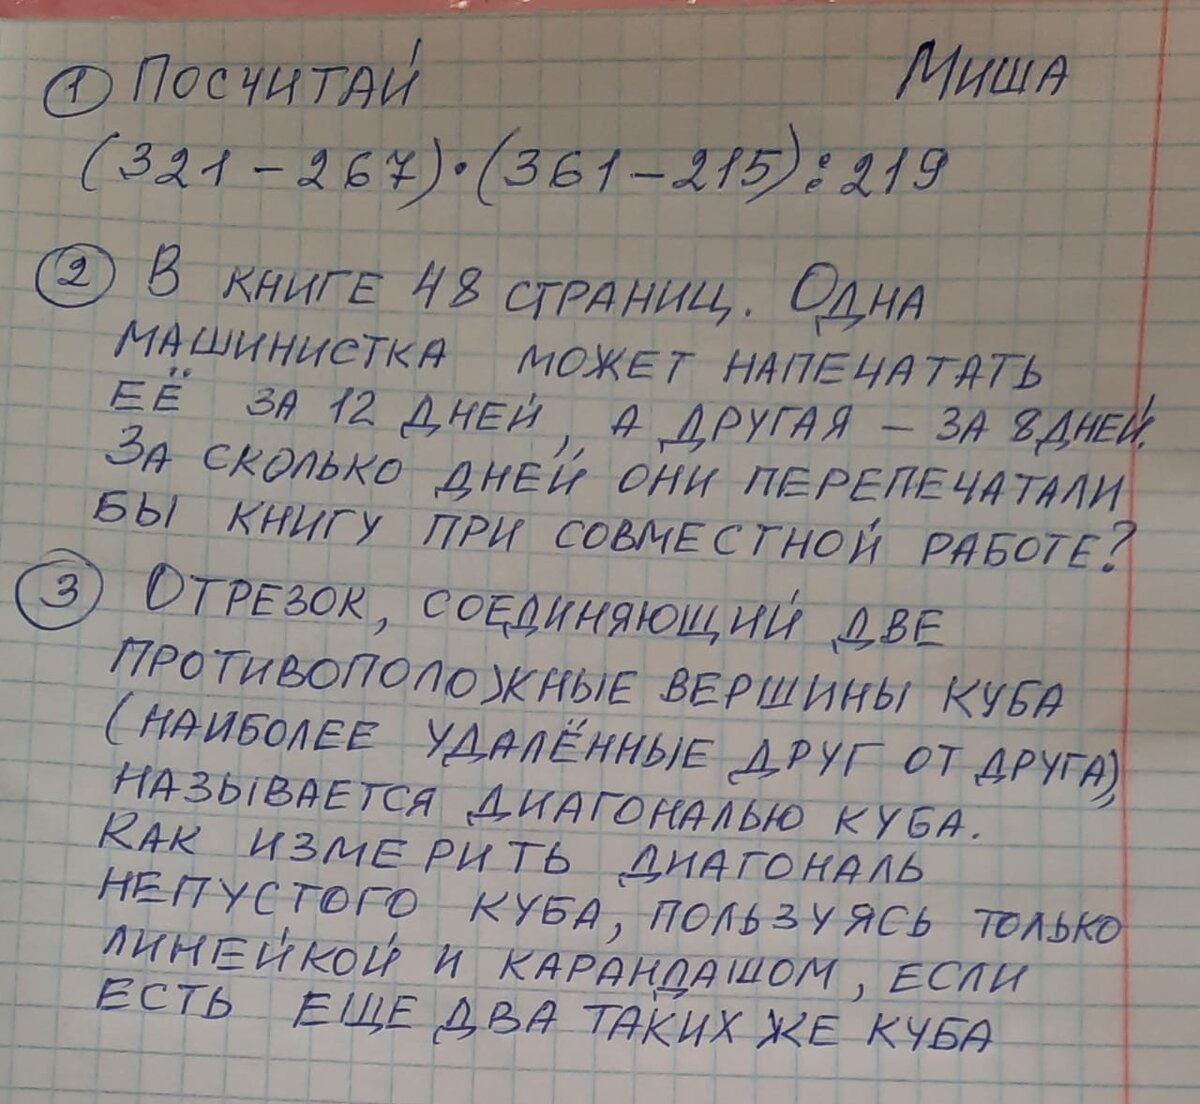 1 Посчитай Миша
(321 - 267) · (361 - 215) : 219
2 В книге 48 страниц. Одна
машинистка может напечатать
её за 12 дней, а другая - за 8 дней.
За сколько дней они перепечатали
бы книгу при совместной работе?
3 Отрезок, соединяющий две
противоположные вершины куба
(наиболее удалённые друг от друга),
называется диагональю куба.
Как измерить диагональ
непустого куба, пользуясь только
линейкой и карандашом, если
есть еще два таких же куба